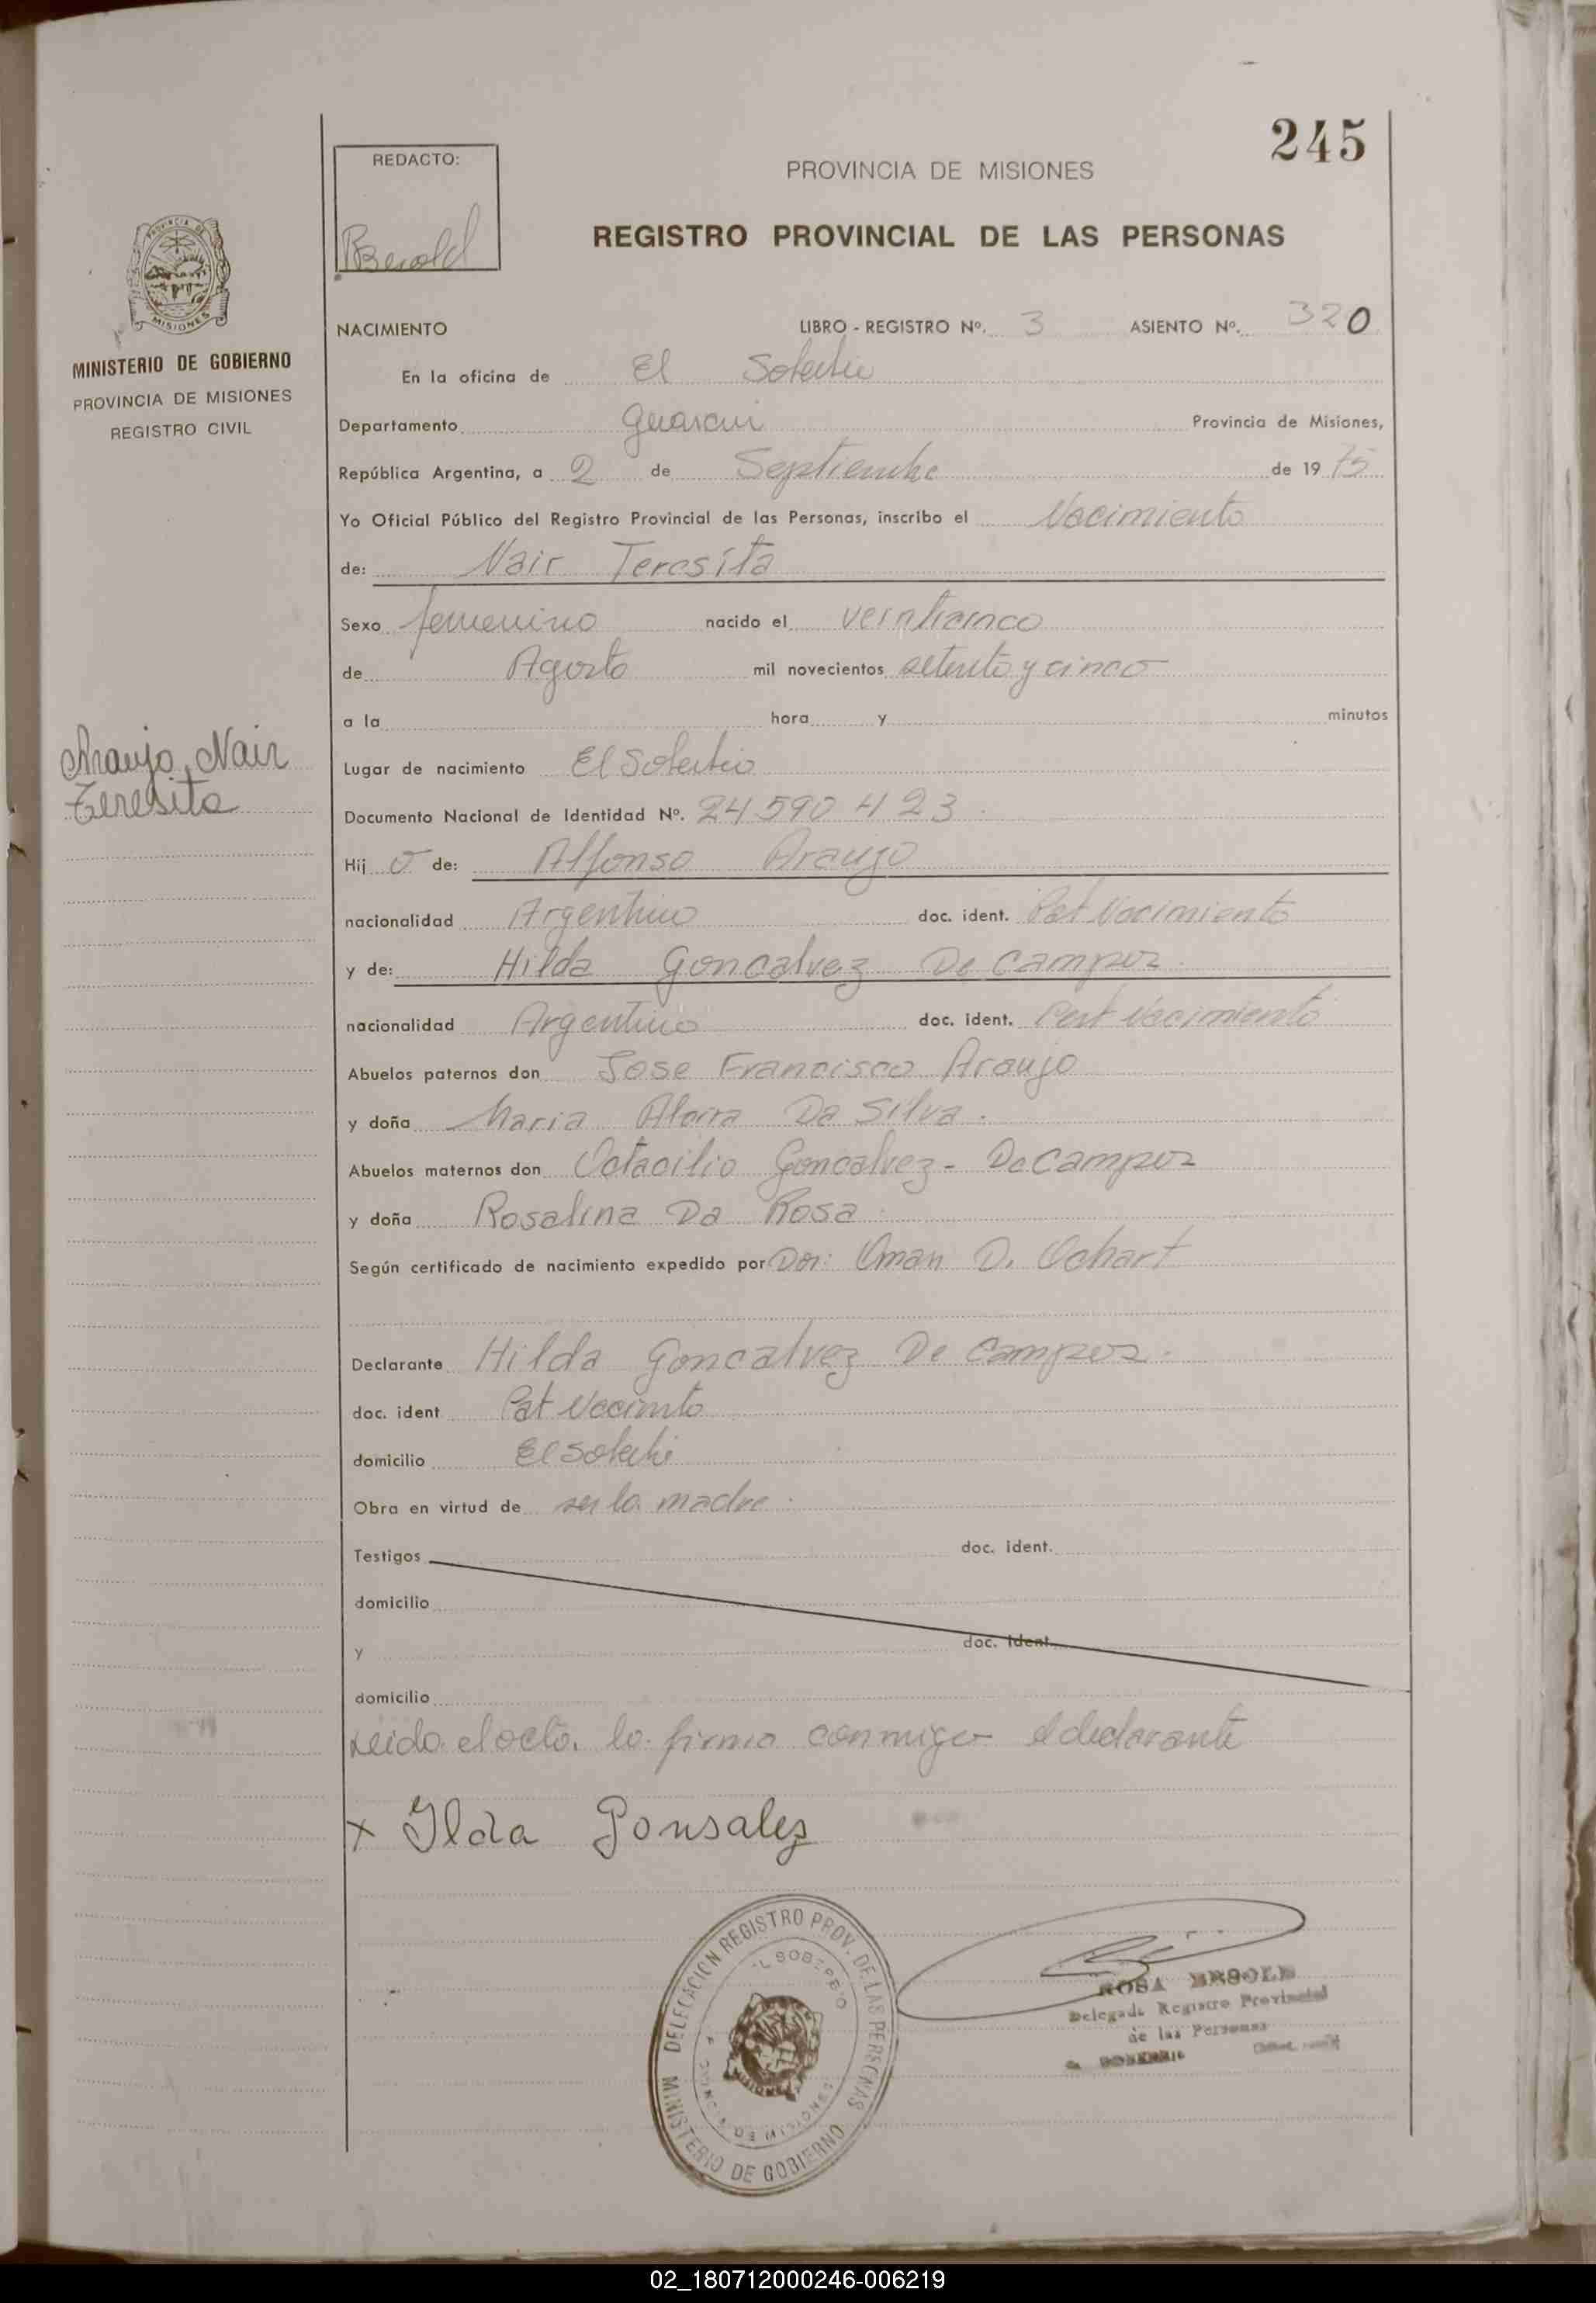 245
REDACTO:
PROVINCIA DE MISIONES
REGISTRO PROVINCIAL DE LAS PERSONAS
MINISTERIO DE GOBIERNO
PROVINCIA DE MISIONES
REGISTRO CIVIL
NACIMIENTO LIBRO - REGISTRO Nº. 3 ASIENTO Nº. 320
En la oficina de El
Departamento Guarani Provincia de Misiones,
República Argentina, a 2 de Septiembre de 1975
Yo Oficial Público del Registro Provincial de las Personas, inscribo el Nacimiento
de: Nair Teresita
Sexo femenino nacido el veinticinco
de Agosto mil novecientos setenta y cinco
a la hora y minutos
Araujo, Nair
Teresita
Lugar de nacimiento El
Documento Nacional de Identidad Nº. 24 590 423
Hij de: Alfonso Araujo
nacionalidad Argentino doc. ident. Nacimiento
y de: Hilda Goncalvez De Campos
nacionalidad Argentino doc. ident. Nacimiento
Abuelos paternos don Jose Francisco Araujo
y doña Maria Da Silva.
Abuelos maternos don Octacilio Goncalvez - De Campos
y doña Rosalina Da Rosa
Según certificado de nacimiento expedido por D. Ochart
Declarante Hilda Goncalvez De Campos.
doc. ident
domicilio El
Obra en virtud de ser la madre.
Testigos doc. ident.
domicilio
y doc. ident.
domicilio
Leido el acta, la firma conmigo el declarante
x Ilda Gonsalez
DELEGACION REGISTRO PROV. DE LAS PERSONAS
MINISTERIO DE GOBIERNO
ROSA
Delegada Registro Provincial
de las Personas
02_180712000246-006219